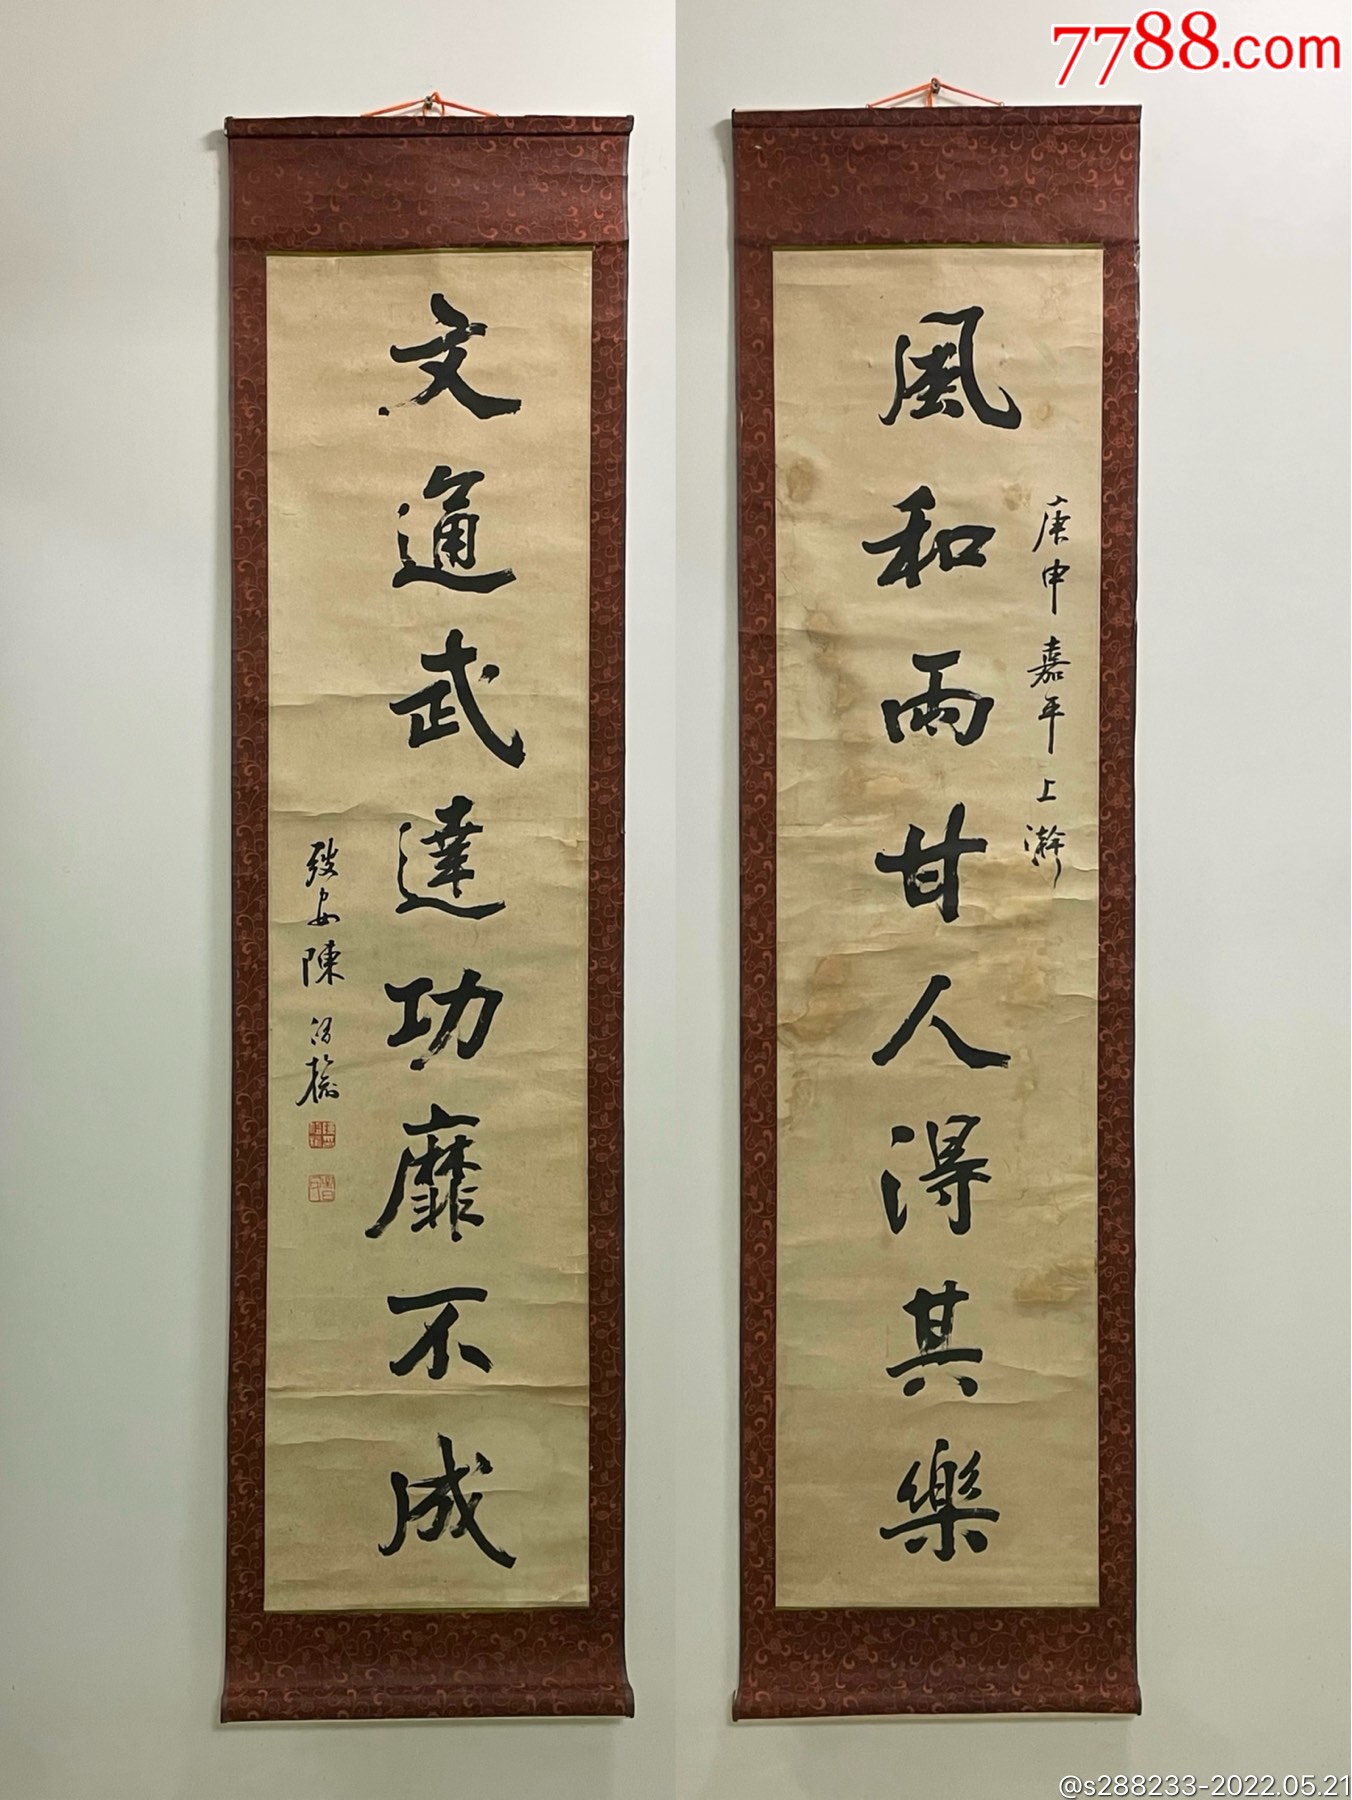 7788.com
庚申嘉平上澣
風和雨甘人得其樂
文通武達功靡不成
安陳
@s288233-2022.05.21